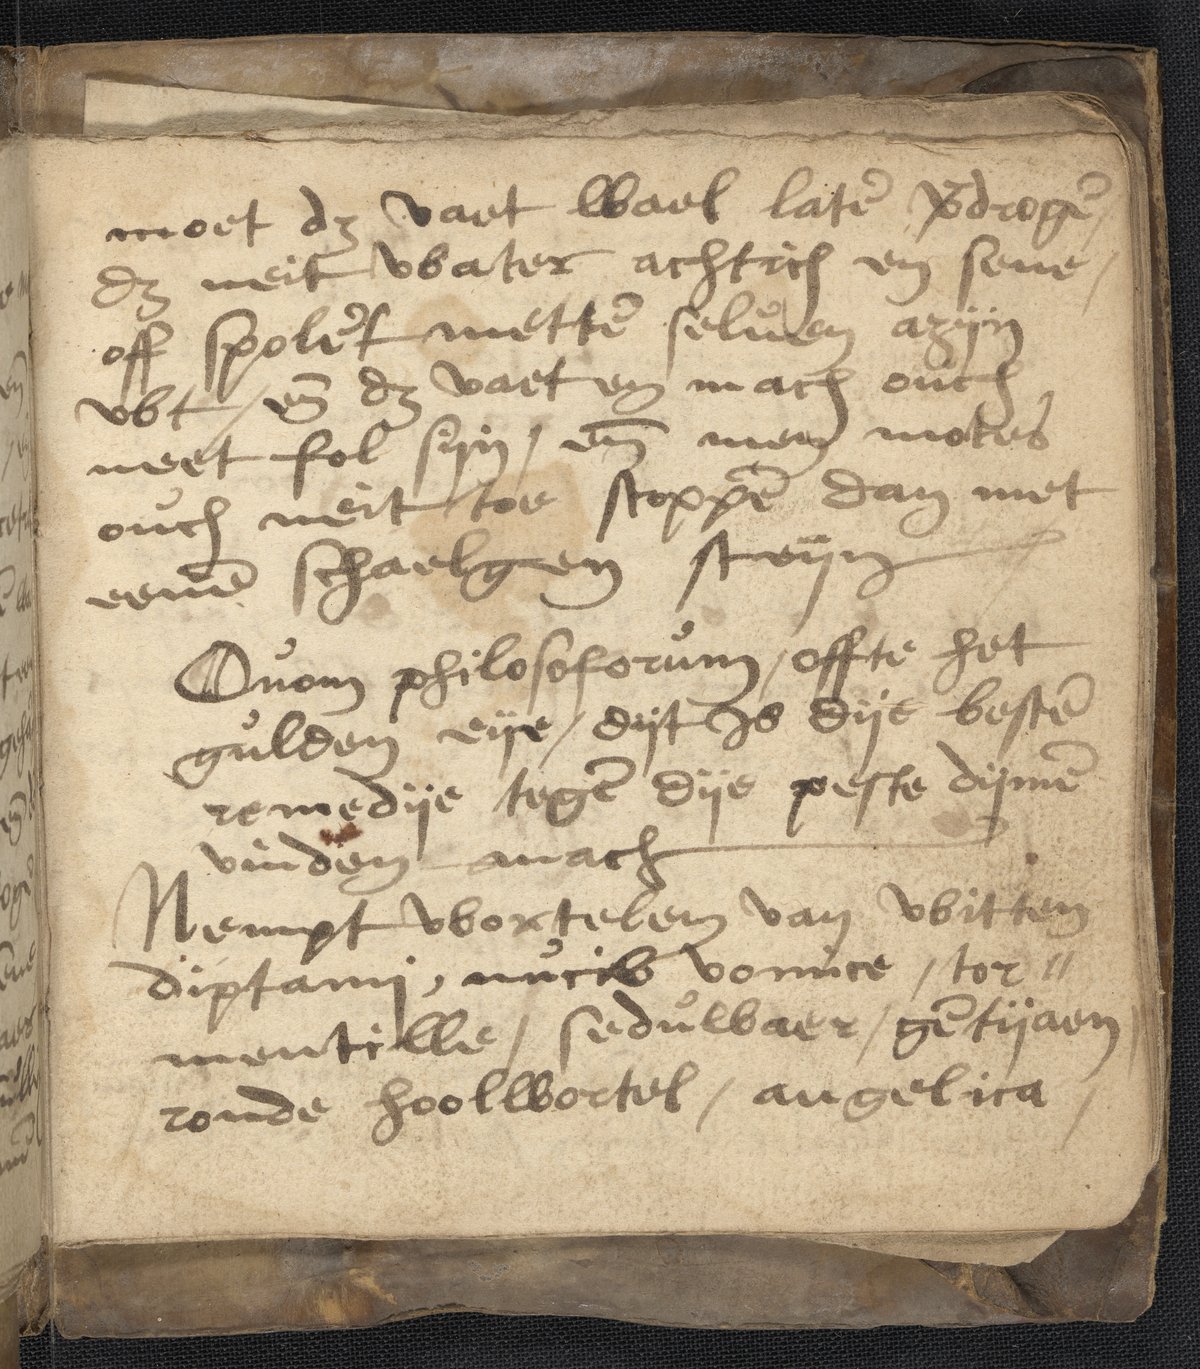 moet dz vaet wael latē v̄drogē /
dz neit water achtich en seue /
off spolet mettē seluen azijn
wt / en̄ dz vaet en mach ouch
neet fol sijn / en̄ men motes
ouch neit toe stoppē dan met
eenē schaelgen steijn
Ouom philosoforum / offte het
gulden eije / dijt Is dije bestē
remedije tegē dije peste dijmē
vinden mach
Nempt wortelen van witten
diptami, nucis vomice / tor //
mentille / seduwaer / gētijaen
ronde hoolwortel / angelica /